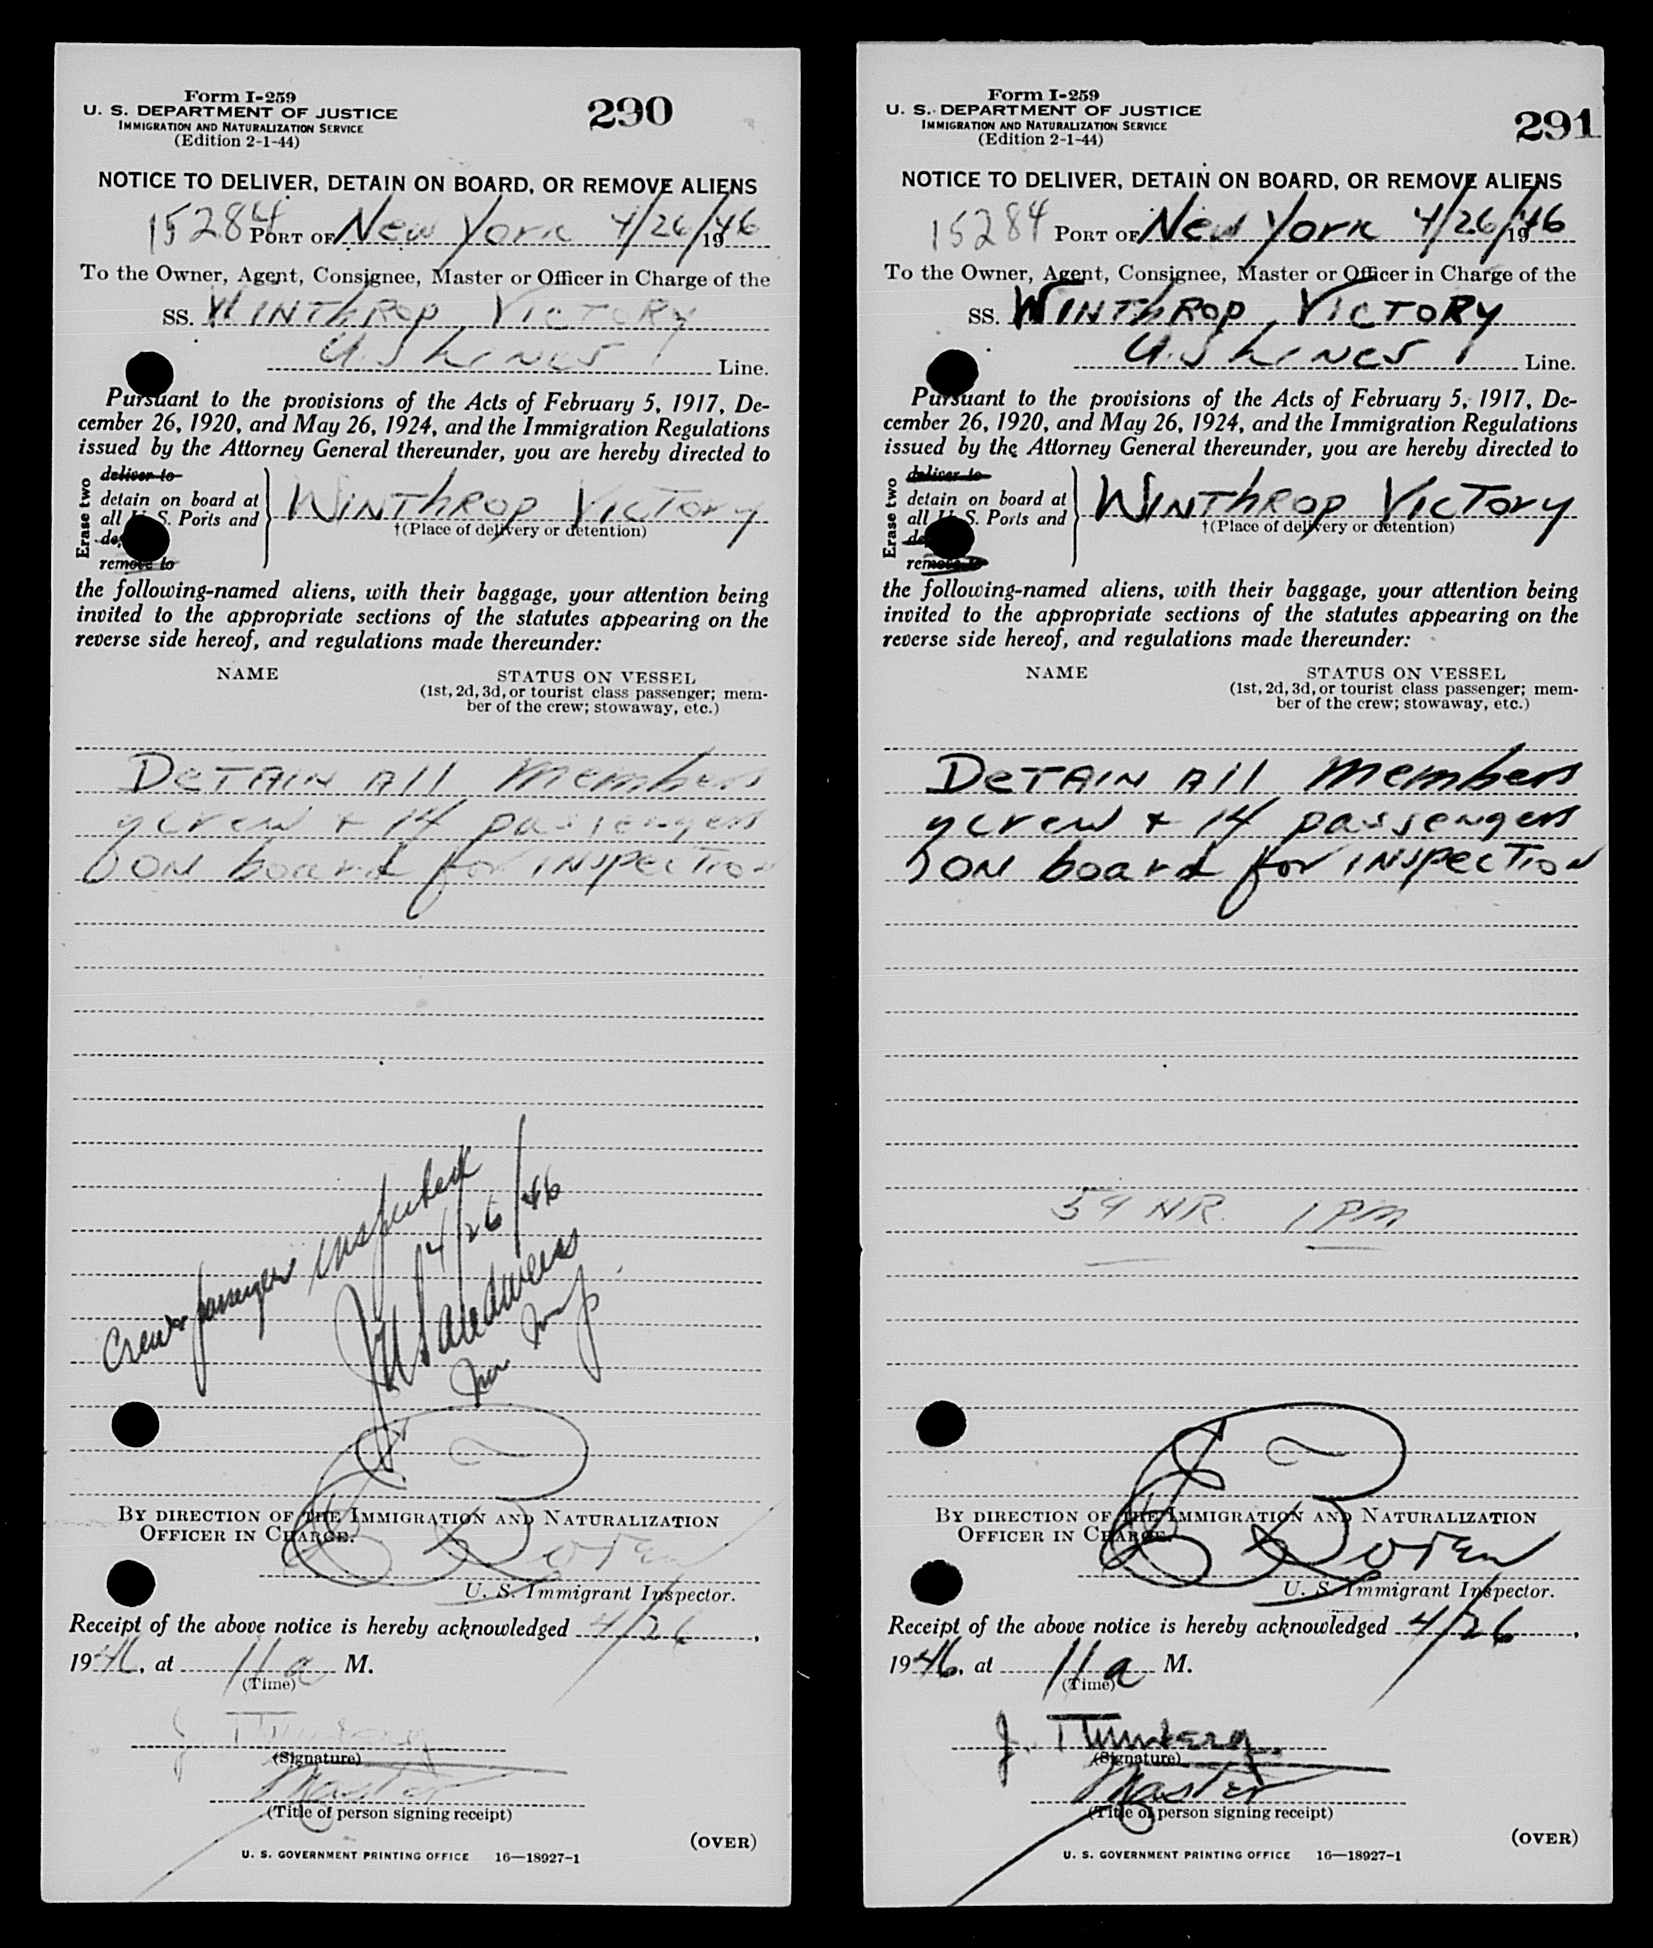 Form I-259
U. S. DEPARTMENT OF JUSTICE
IMMIGRATION AND NATURALIZATION SERVICE
(Edition 2-1-44)
290
NOTICE TO DELIVER, DETAIN ON BOARD, OR REMOVE ALIENS
15284 PORT OF New York 4/26/1946
To the Owner, Agent, Consignee, Master or Officer in Charge of the
SS. WINThROP VICTORY
U.S Lines Line.
Pursuant to the provisions of the Acts of February 5, 1917, De-
cember 26, 1920, and May 26, 1924, and the Immigration Regulations
issued by the Attorney General thereunder, you are hereby directed to
Erase two
deliver to
detain on board at
all U. S. Ports and
remove to
WINThROP VICTory
†(Place of delivery or detention)
the following-named aliens, with their baggage, your attention being
invited to the appropriate sections of the statutes appearing on the
reverse side hereof, and regulations made thereunder:
NAME STATUS ON VESSEL
(1st, 2d, 3d, or tourist class passenger; mem-
ber of the crew; stowaway, etc.)
DeTAIN All members
of crew + 14 passengers
ON board for INspecTion
Crew & passengers inspected
4/26/46
Imm Insp
BY DIRECTION OF THE IMMIGRATION AND NATURALIZATION
OFFICER IN CHARGE.
U. S. Immigrant Inspector.
Receipt of the above notice is hereby acknowledged 4/26,
1946, at 11 a M.
(Time)
J.
(Signature)
Master
(Title of person signing receipt)
(OVER)
U. S. GOVERNMENT PRINTING OFFICE 16—18927-1
Form I-259
U. S. DEPARTMENT OF JUSTICE
IMMIGRATION AND NATURALIZATION SERVICE
(Edition 2-1-44)
291
NOTICE TO DELIVER, DETAIN ON BOARD, OR REMOVE ALIENS
15284 PORT OF New York 4/26/1946
To the Owner, Agent, Consignee, Master or Officer in Charge of the
SS. WINThROP VICTORY
U.S Lines Line.
Pursuant to the provisions of the Acts of February 5, 1917, De-
cember 26, 1920, and May 26, 1924, and the Immigration Regulations
issued by the Attorney General thereunder, you are hereby directed to
Erase two
deliver to
detain on board at
all U. S. Ports and
remove to
WINThROP VICTory
†(Place of delivery or detention)
the following-named aliens, with their baggage, your attention being
invited to the appropriate sections of the statutes appearing on the
reverse side hereof, and regulations made thereunder:
NAME STATUS ON VESSEL
(1st, 2d, 3d, or tourist class passenger; mem-
ber of the crew; stowaway, etc.)
DeTAIN All members
of crew + 14 passengers
ON board for INspecTion
59 NR. 1 PM
BY DIRECTION OF THE IMMIGRATION AND NATURALIZATION
OFFICER IN CHARGE.
U. S. Immigrant Inspector.
Receipt of the above notice is hereby acknowledged 4/26,
1946, at 11 a M.
(Time)
J.
(Signature)
Master
(Title of person signing receipt)
(OVER)
U. S. GOVERNMENT PRINTING OFFICE 16—18927-1